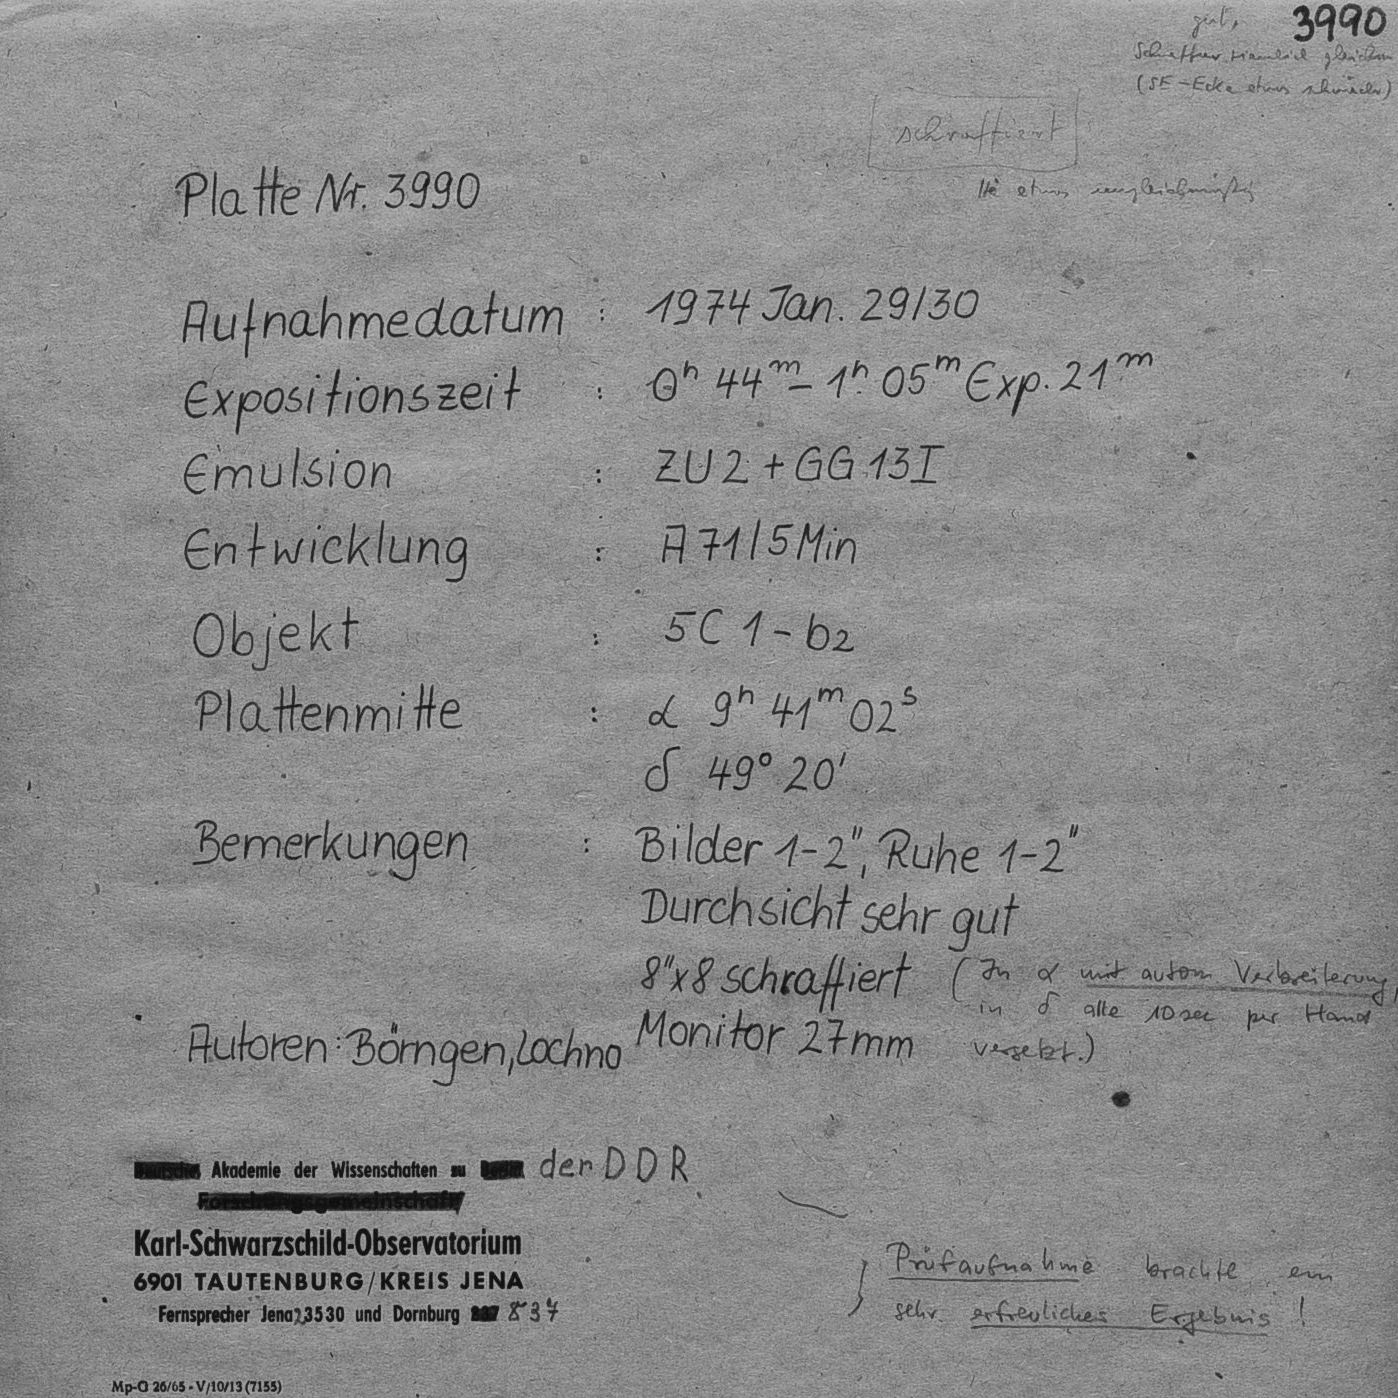 gut, 3990
Schraffur ziemlich gleichm
(SE-Ecke etwas schwächer)
schraffiert
etwas ungleichmäßig
Platte Nr. 3990
Aufnahmedatum : 1974 Jan. 29/30
Expositionszeit : 0h 44m – 1h 05m Exp. 21m
Emulsion : ZU2 + GG 13 I
Entwicklung : A71/5 Min
Objekt : 5C 1 - b2
Plattenmitte : α 9h 41m 02s
δ 49° 20'
Bemerkungen : Bilder 1-2", Ruhe 1-2"
Durchsicht sehr gut
8"x8 schraffiert (In α mit autom Verbreiterung,
in δ alle 10 sec per Hand
Autoren: Börngen, Lochno Monitor 27mm versetzt.)
Deutsche Akademie der Wissenschaften zu Berlin der DDR
Forschungsgemeinschaft
Karl-Schwarzschild-Observatorium
6901 TAUTENBURG/KREIS JENA
Fernsprecher Jena 23530 und Dornburg 837
Prüfaufnahme brachte ein
sehr erfreuliches Ergebnis!
Mp-G 26/65 - V/10/13 (7155)